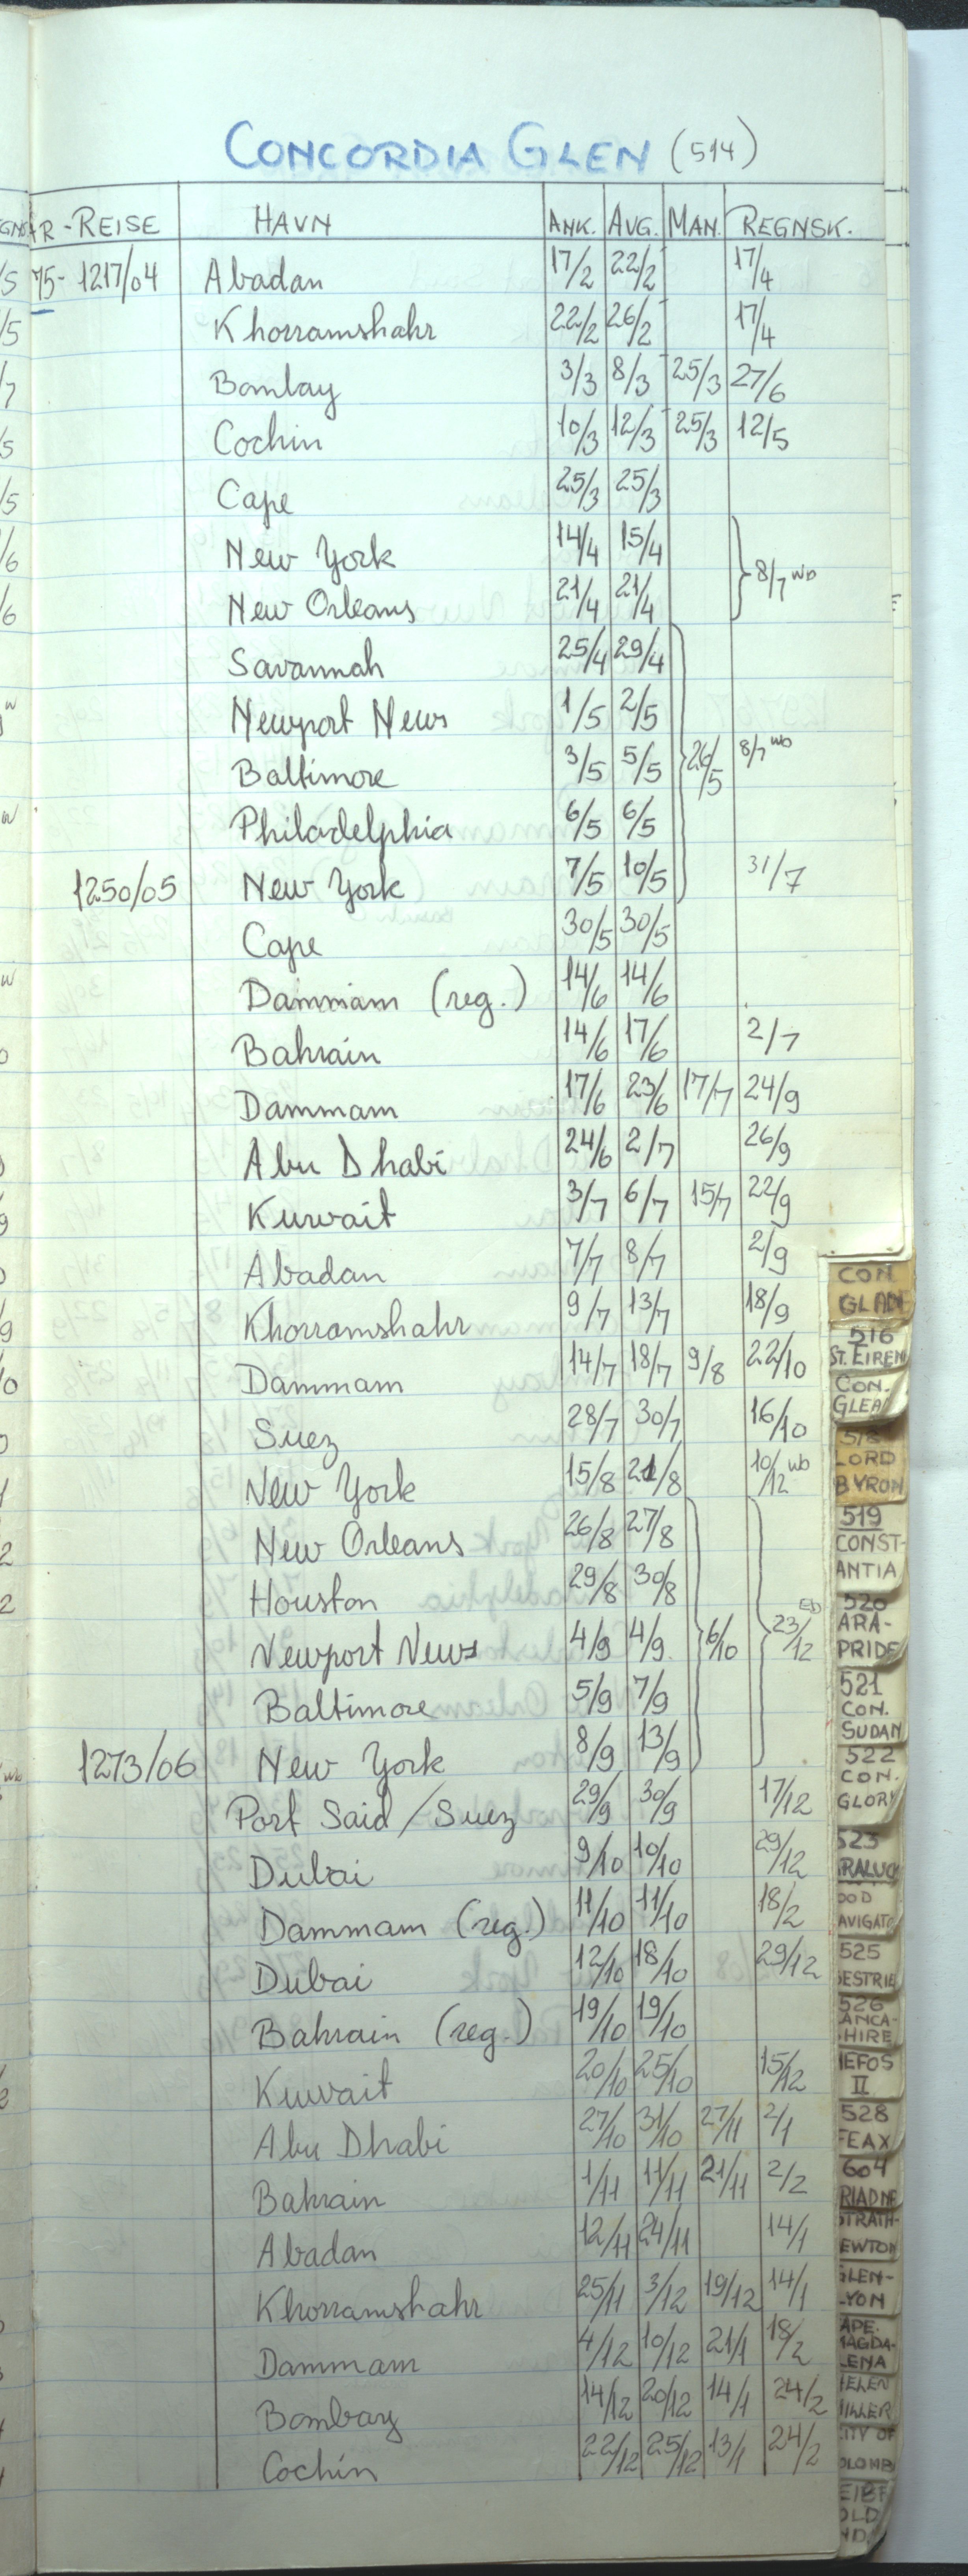 CONCORDIA GLEN (514)
ÅR-REISE HAVN ANK. AVG. MAN. REGNSK.
75- 1217/04 Abadan 17/2 22/2 17/4
Khorramshahr 22/2 26/2 17/4
Bombay 3/3 8/3 25/3 27/6
Cochin 10/3 12/3 25/3 12/5
Cape 25/3 25/3
New York 14/4 15/4
8/7 wb
New Orleans 21/4 21/4
Savannah 25/4 29/4
Newport News 1/5 2/5
Baltimore 3/5 5/5 26/5 8/7 wb
Philadelphia 6/5 6/5
1250/05 New York 7/5 10/5 31/7
Cape 30/5 30/5
Dammam (reg.) 14/6 14/6
Bahrain 14/6 17/6 2/7
Dammam 17/6 23/6 17/7 24/9
Abu Dhabi 24/6 2/7 26/9
Kuwait 3/7 6/7 15/7 22/9
Abadan 7/7 8/7 2/9
Khorramshahr 9/7 13/7 18/9
Dammam 14/7 18/7 9/8 22/10
Suez 28/7 30/7 16/10
New York 15/8 21/8 10/12 wb
New Orleans 26/8 27/8
Houston 29/8 30/8
Newport News 4/9 4/9 6/10 23/12 EB
Baltimore 5/9 7/9
1273/06 New York 8/9 13/9
Port Said/Suez 29/9 30/9 17/12
Dubai 9/10 10/10 29/12
Dammam (reg.) 11/10 11/10 18/2
Dubai 12/10 18/10 29/12
Bahrain (reg.) 19/10 19/10
Kuwait 20/10 25/10 15/12
Abu Dhabi 27/10 31/10 27/11 2/1
Bahrain 1/11 11/11 21/11 2/2
Abadan 12/11 24/11 14/1
Khorramshahr 25/11 3/12 19/12 14/1
Dammam 4/12 10/12 21/1 18/2
Bombay 14/12 20/12 14/1 24/2
Cochin 22/12 25/12 13/1 24/2
CON
GLADE
516
ST. EIREN
CON.
GLEA
518
LORD
BYRON
519
CONST-
ANTIA
520
ARA-
PRIDE
521
CON.
SUDAN
522
CON.
GLORY
523
RALUC
OOD
AVIGATO
525
ESTRIE
526
ANCA-
HIRE
IEFOS
II
528
FEAX
604
RIADNE
STRATH-
EWTON
GLEN-
LYON
APE.
MAGDA-
LENA
HELEN
MILLER
CITY OF
OLOMB
EIBF
OLD
ND.